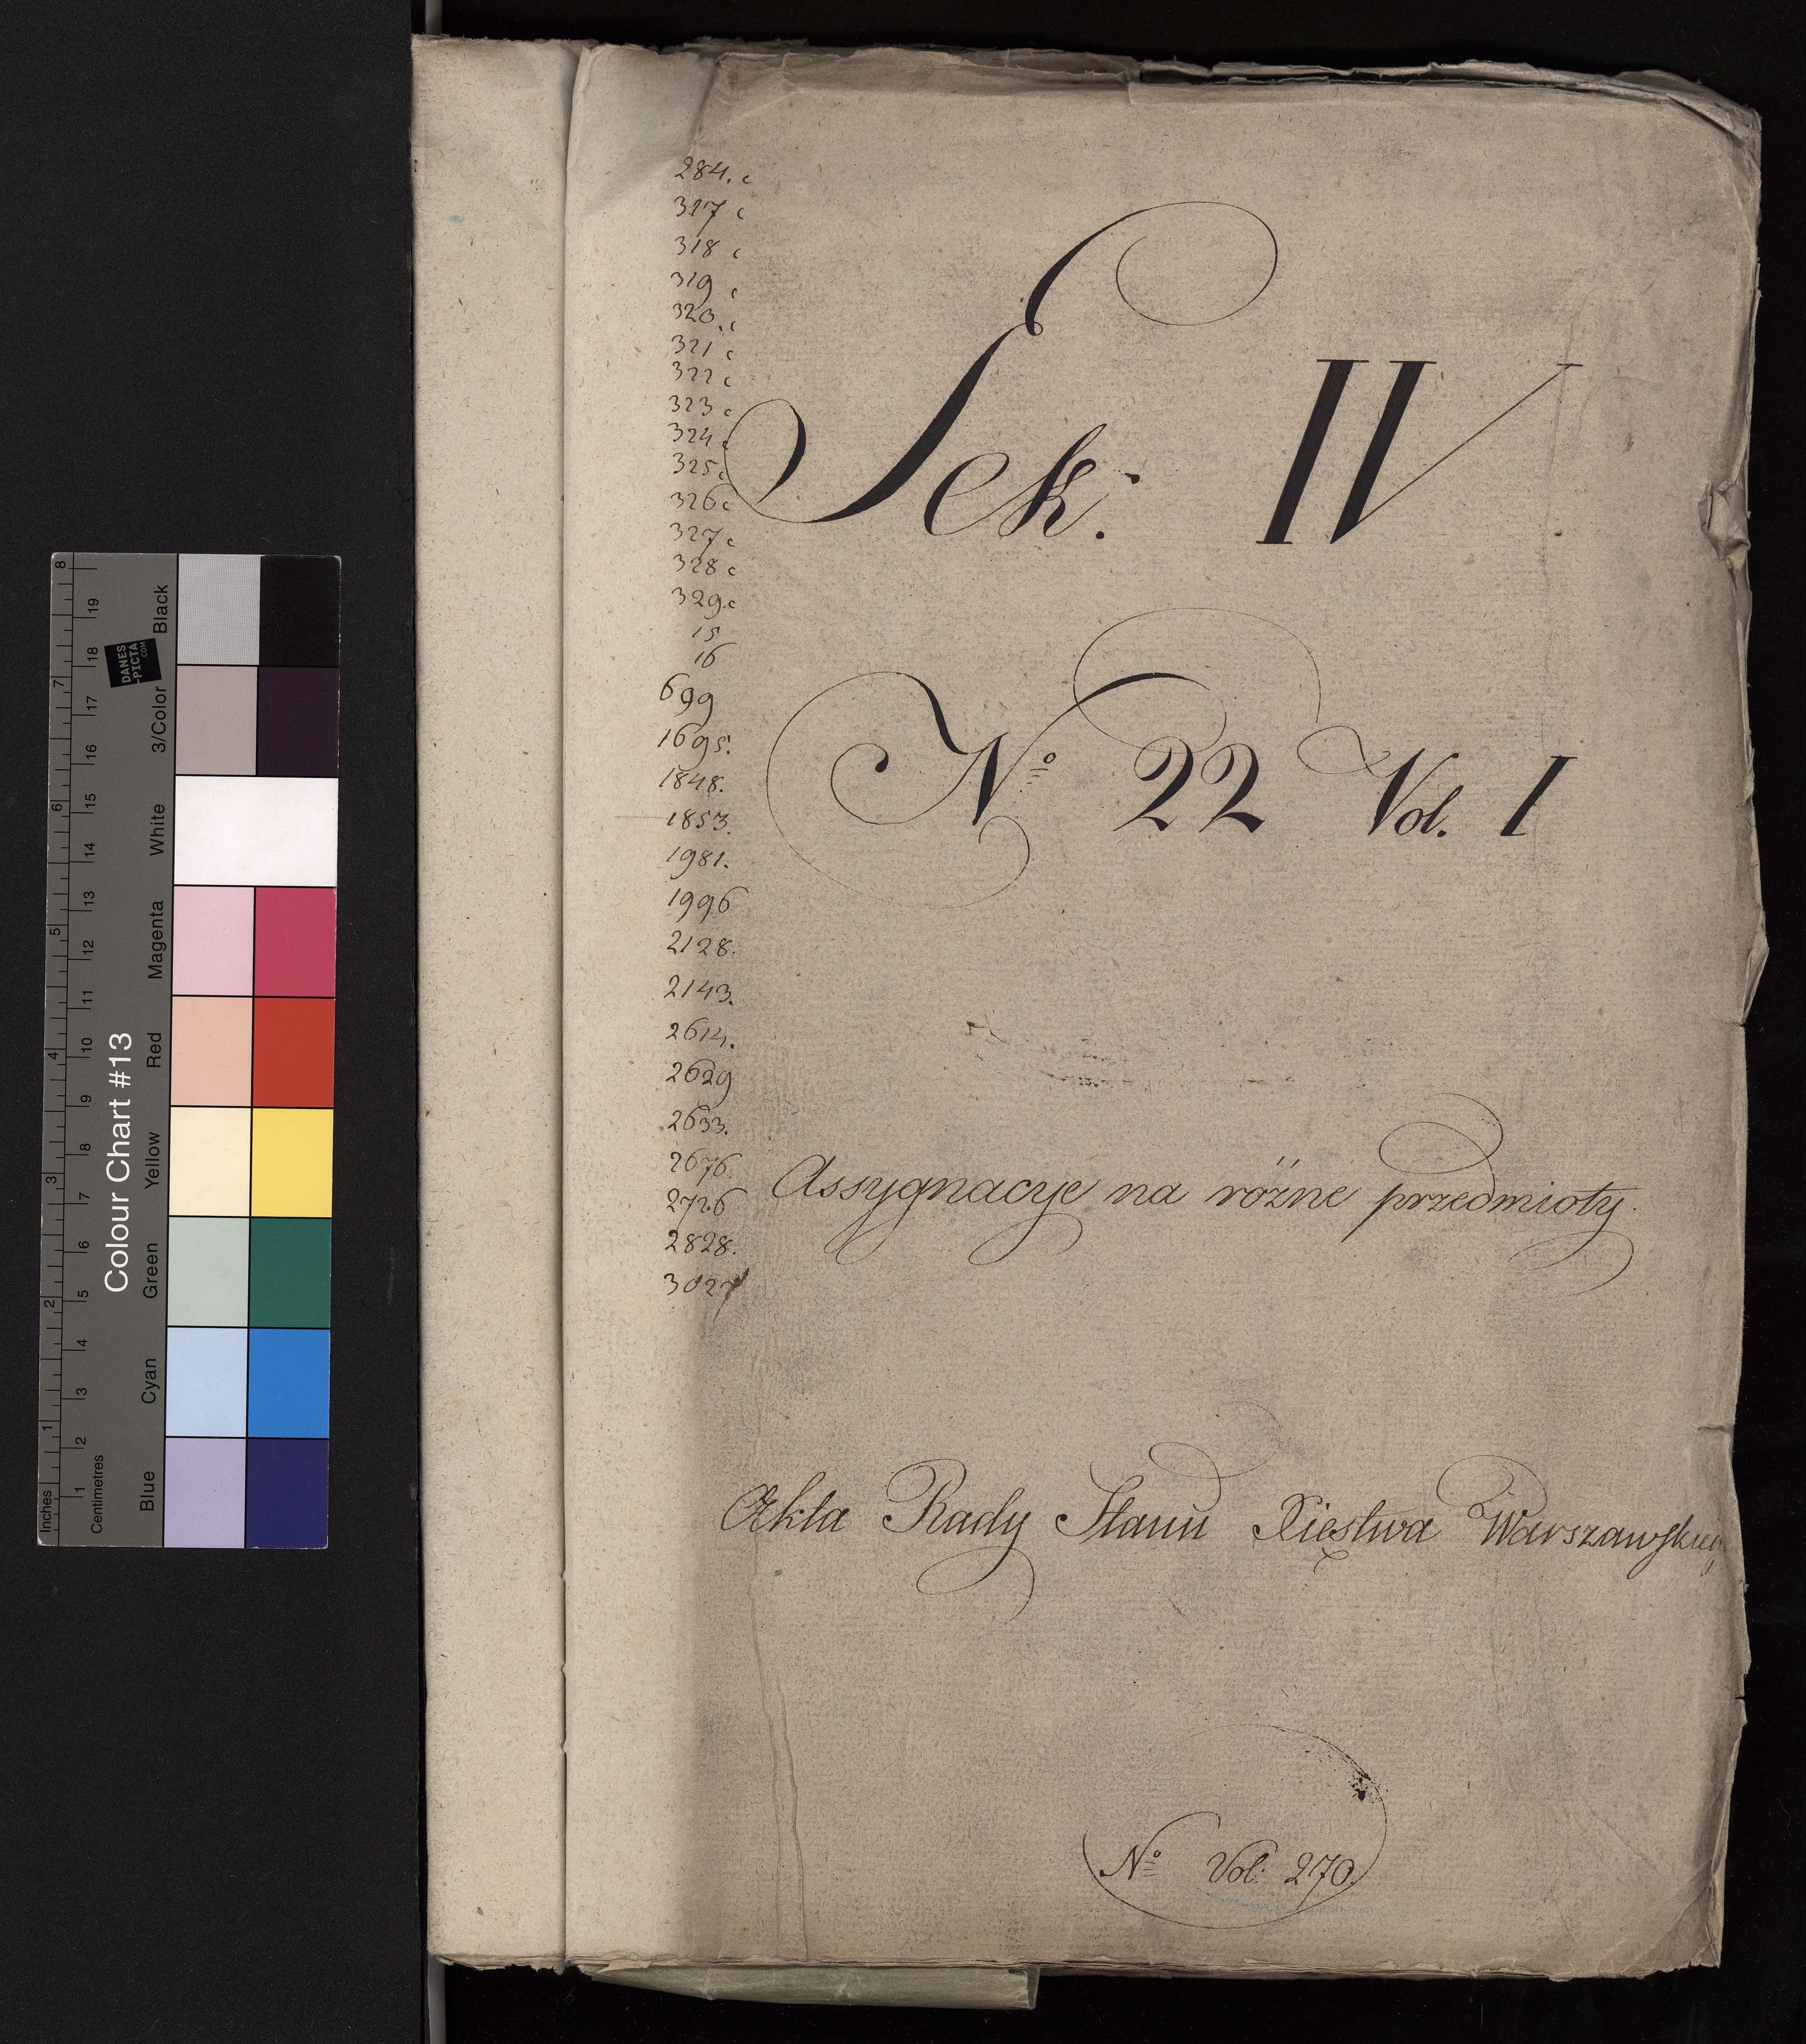 284. c
317 c
318 c
319 c
320. c
321 c
322 c
323 c
324 c
325 c
326 c
327 c
328 c
329. c
15
16
699
1695.
1848.
1853.
1981.
1996
2128.
2143.
2614.
2629
2633.
2676.
2726
2828.
3027
Sek: IV
Nº 22 Vol. I
Assygnacye na różne przedmioty.
Akta Rady Stanu Xięstwa Warszawskiego
Nº Vol: 270.
Colour Chart #13
DANES
-PICTA
.COM
Inches
1 2 3 4 5 6 7 8
Centimetres
1 2 3 4 5 6 7 8 9 10 11 12 13 14 15 16 17 18 19
Blue Cyan Green Yellow Red Magenta White 3/Color Black